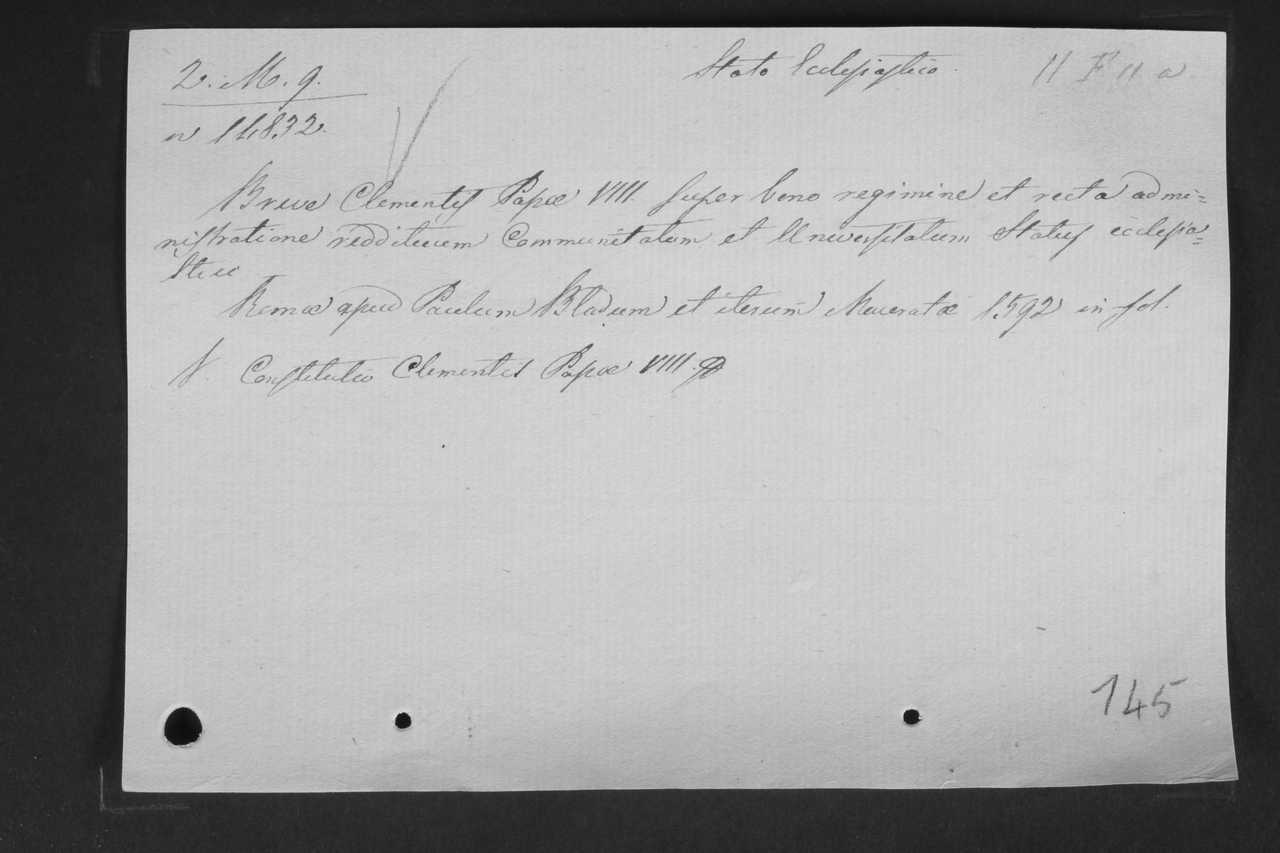 2. M. 9.
Stato Eclesiastico.
II F II a
n 14832.
Breve Clementis Papæ VIII. super bono regimine et recta admi=
nistratione reddituum Communitatum et Universitatum Status ecclesia=
stici
Romæ apud Paulum Bladum et iterum Maceratæ 1592 in fol.
V. Constitutio Clementis Papæ VIII.
145